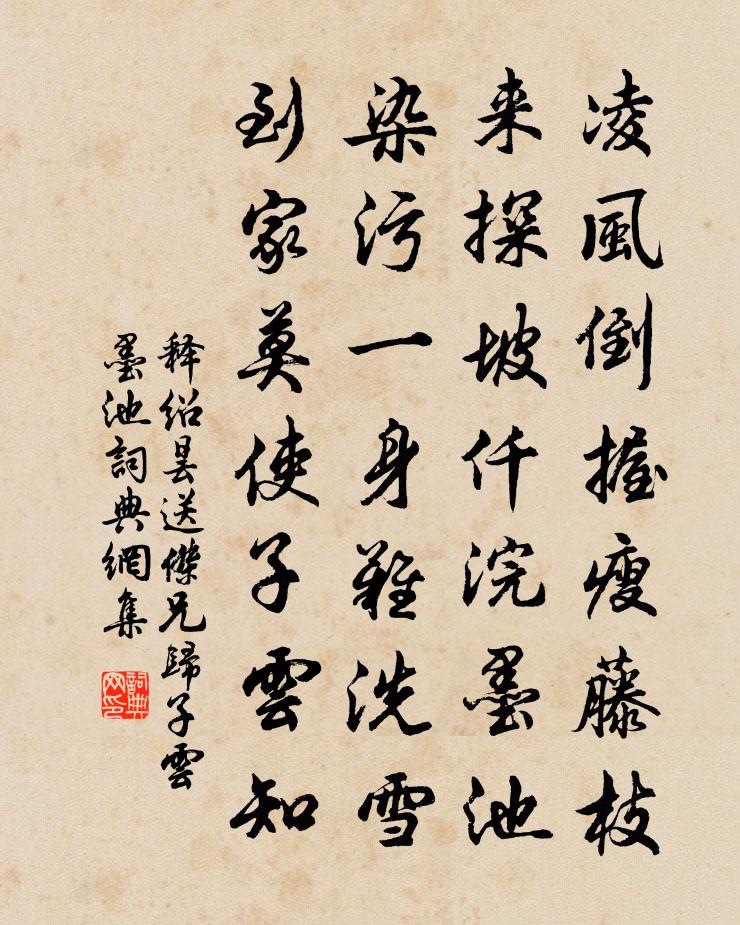 凌風倒握瘦藤枝
来探坡仟浣墨池
染污一身難洗雪
到家莫使子雲知
释紹曇送傑兄歸子雲
墨池詞典網集
詞典网印